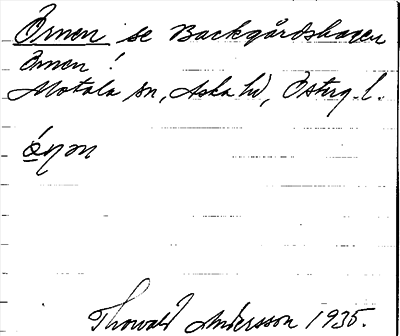 Örnen se Backgårdshagen
Örnen!
Motala sn, Aska hd, Österg.l.
Thorvald Andersson 1935.